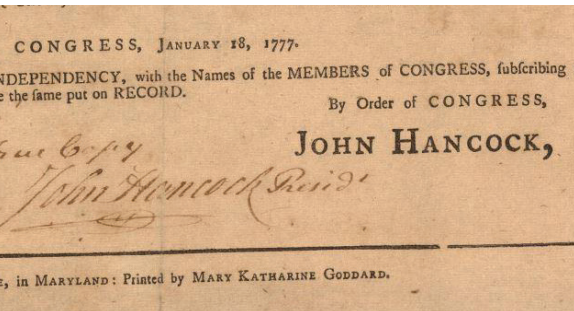 CONGRESS, JANUARY 18, 1777.
NDEPENDENCY, with the Names of the MEMBERS of CONGRESS, ſubſcribing
e the ſame put on RECORD.
By Order of CONGRESS,
JOHN HANCOCK,
Copy
John Hancock Presidt
E, in MARYLAND: Printed by MARY KATHARINE GODDARD.